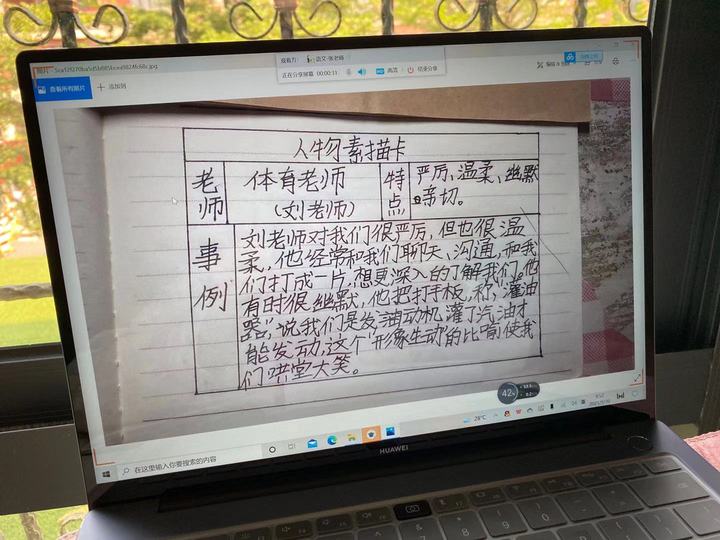 观看方: 语文-张老师
正在分享屏幕 00:00:11 高清 结束分享
查看所有照片 添加到
人物素描卡
老师 体育老师（刘老师） 特点 严厉、温柔、幽默、亲切。
事例
刘老师对我们很严厉,但也很温
柔,他经常和我们聊天、沟通,和我
们打成一片,想更深入的了解我们。他
有时很幽默,他把打手板,称“灌油
器”,说我们是发油动机,灌了汽油才
能发动,这个“形象生动”的比喻使我
们哄堂大笑。
42
28°C
在这里输入你要搜索的内容
HUAWEI